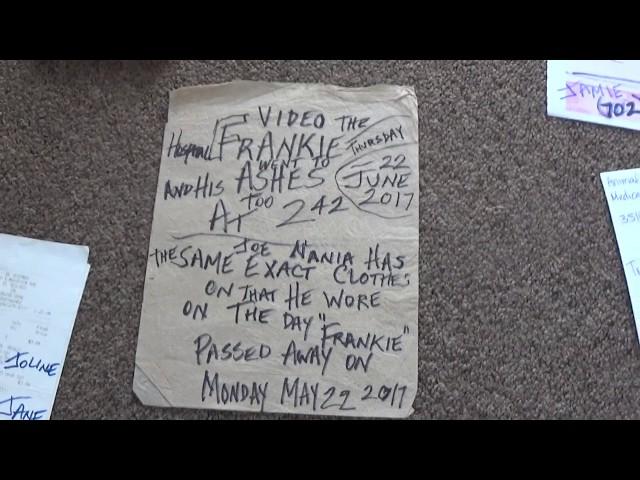 VIDEO THE
HOSPITAL FRANKIE
WENT TO
AND HIS ASHES
TOO
AT 2 42
THURSDAY
22
JUNE
2017
JOE NANIA HAS
THE SAME EXACT CLOTHES
ON THAT HE WORE
ON THE DAY "FRANKIE"
PASSED AWAY ON
MONDAY MAY 22 2017
JAMIE
Animal
Medica
3511
JOLINE
JANE